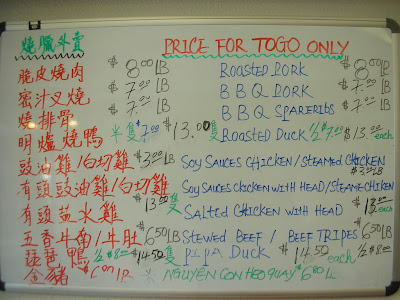 燒臘外賣 PRICE FOR TOGO ONLY
脆皮燒肉 $8.00 LB ROASTED PORK $8.00 LB
密汁叉燒 $7.00 LB B B Q PORK $7.00 LB
燒排骨 $7.00 LB B B Q SPARERIBS $7.00 LB
明爐燒鴨 半隻 $7.00 $13.00 隻 ROASTED DUCK 1/2 $7.00 $13.00 each
豉油雞/白切雞 $3.00 LB SOY SAUCES CHICKEN/STEAMED CHICKEN $3.00 LB
有頭豉油雞/白切雞 $13.00 隻 SOY SAUCES CHICKEN WITH HEAD/STEAME CHICKEN
有頭盐水雞 SALTED CHICKEN WITH HEAD $13.00 each
五香牛角/牛肚 $6.50 LB STEWED BEEF / BEEF TRIPES $6.50 LB
琵琶鴨 1/2 $8.00 $14.50 隻 PIPA DUCK $14.50 each 1/2 $8.00
金豬 $6.00 LB * NGUYÊN CON HEO QUAY $6.00 L